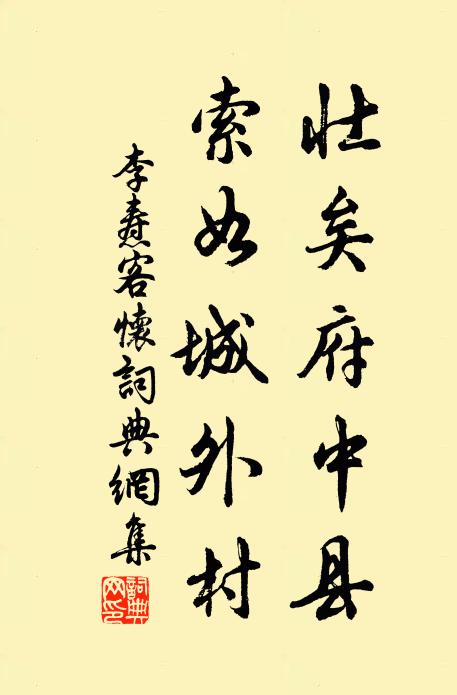 壮矣府中县
索如城外村
李焘客怀詞典網集
詞典网印